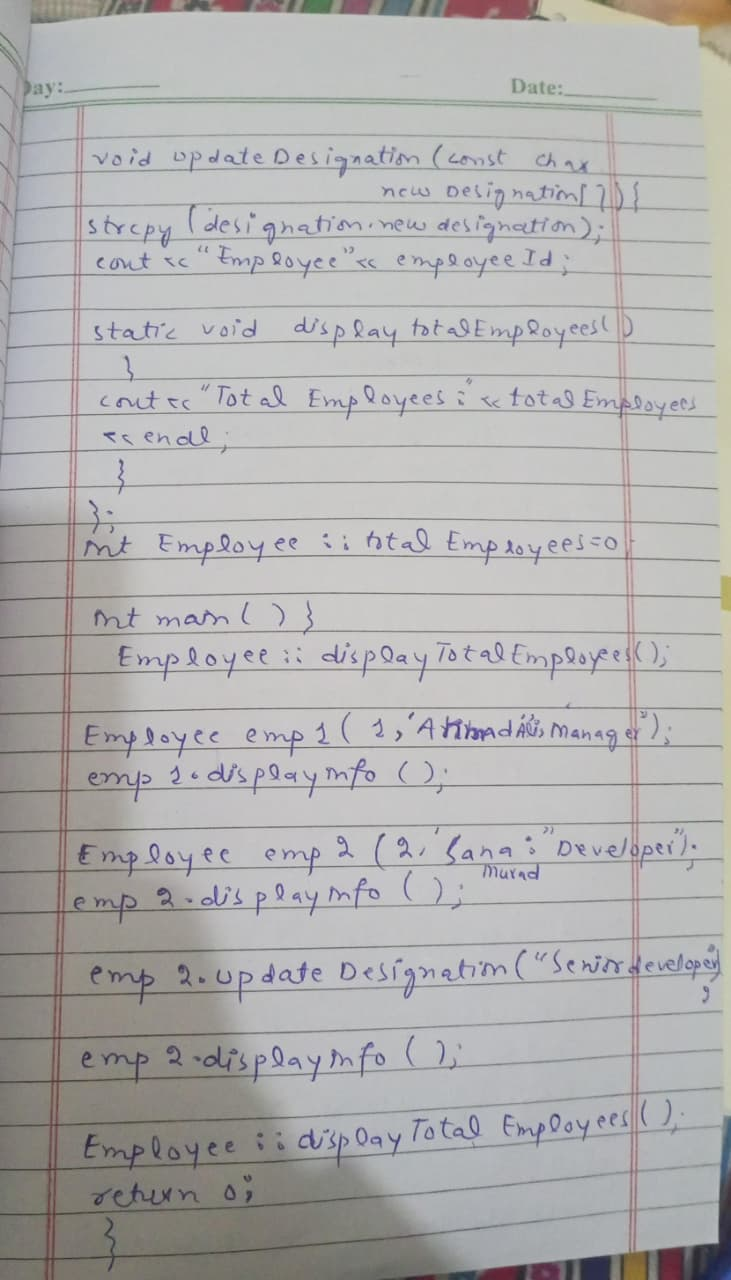 Day:
Date:
void updateDesignation (const char
new Designation[]){
strcpy (designation.new designation);
cout << "Employee" << employee Id;
static void display totalEmployees()
}
cout << "Total Employees:" << totalEmployees
<< endl;
}
};
int Employee :: total Employees=0;
int main ( ) }
Employee :: display Total Employees();
Employee emp 1 ( 1, "Ahmad Ali, Manager");
emp 1.displayinfo ( );
Employee emp 2 (2, 'Sana : "Developer");
Murad
emp 2.displayinfo ( );
emp 2.update Designation ("Senior developer)
;
emp 2.displayinfo ( );
Employee :: display Total Employees ( );
return 0;
}